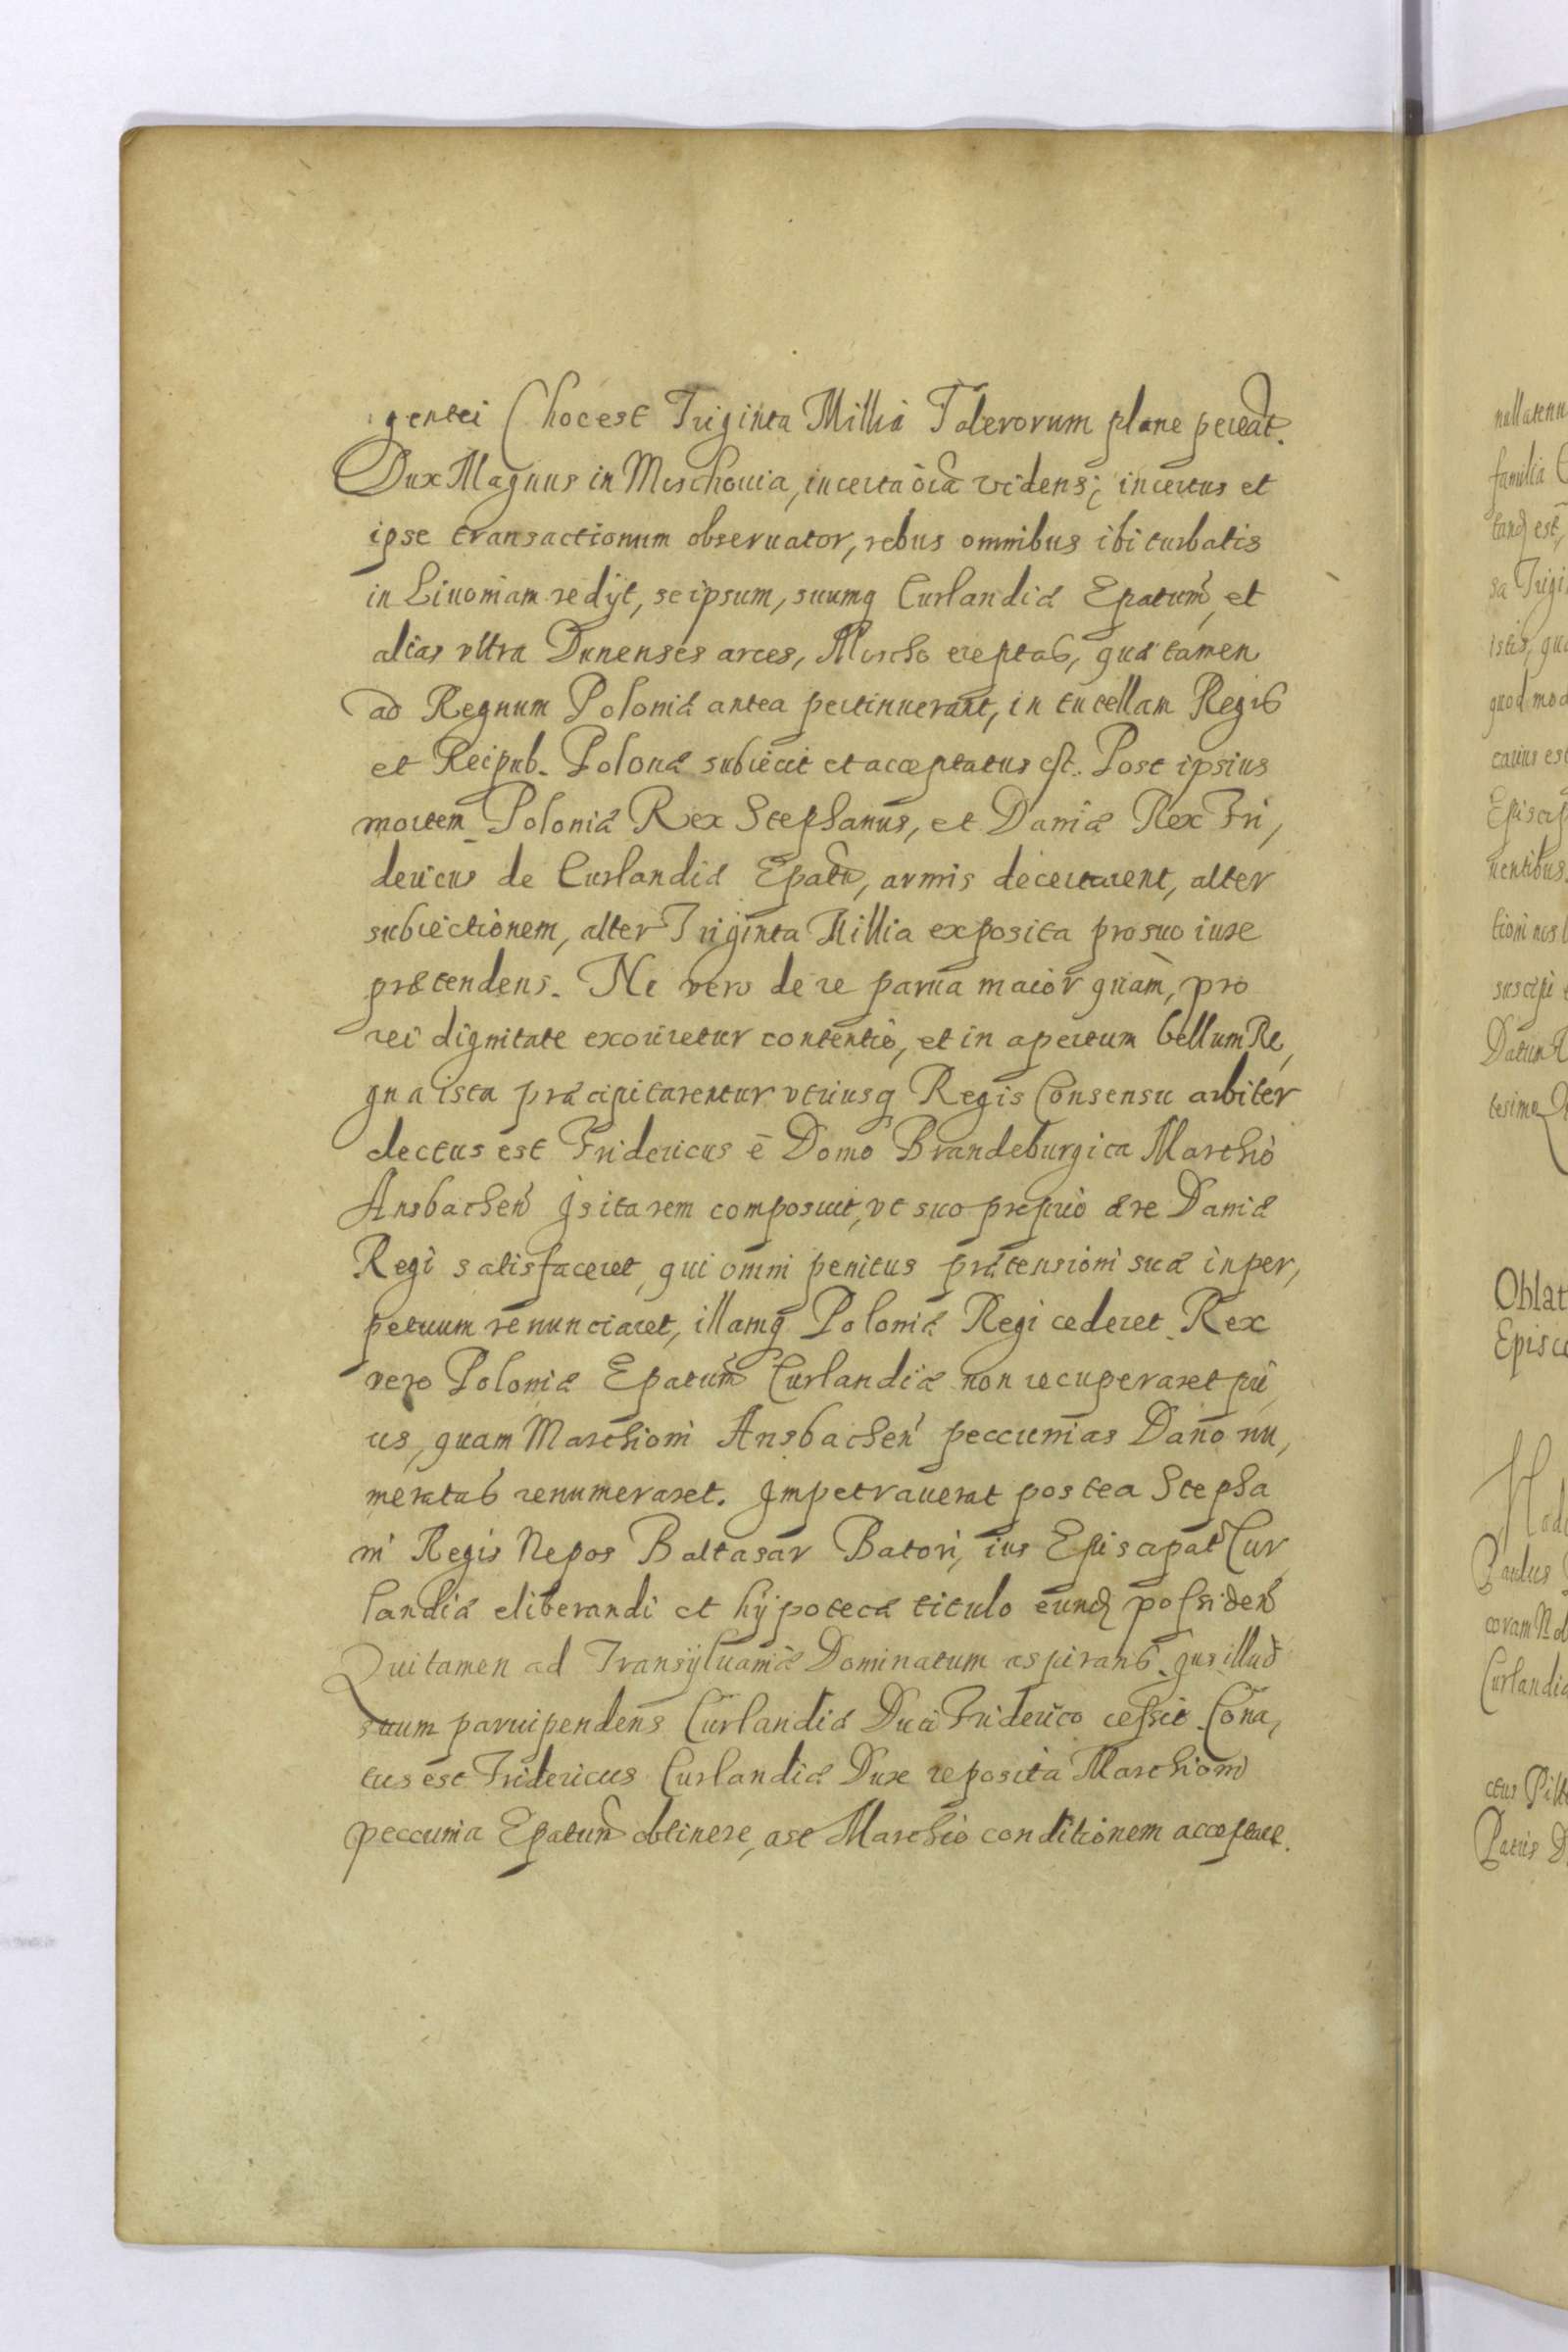 gentei (hocest Triginta Millia Talerorum plane pereat.
Dux Magnus in Moschouia, incerta oīa videns, incertus et
ipse transactionum obseruator, rebus omnibus ibi turbatis
in Liuoniam redijt, seipsum, suumq Curlandiæ Epatum, et
alias vltra Dunenses arces, Moscho ereptas, quæ tamen
ad Regnum Poloniæ antea pertinuerant, in tutellam Regis
et Reipub. Polonæ subiecit et acceptatus est. Post ipsius
mortem Poloniæ Rex Stephanus, et Daniæ Rex Fri,
dericus de Curlandiæ Epatu, armis decertarent, alter
subiectionem, alter Triginta Millia exposita pro suo iure
prætendens. Ne vero de re parua maior quam, pro
rei dignitate exoriretur contentio, et in apertum bellum Re,
gna ista præcipitarentur vtriusq Regis Consensu arbiter
electus est Fridericus é Domo Brandeburgica Marchio
Ansbachen Is ita rem composuit, vt suo proprio ære Daniæ
Regi satisfaceret, qui omni penitus prætensioni suæ in per,
petuum renunciaret, illamq Poloniæ Regi cederet Rex
vero Poloniæ Epatum Curlandiæ non recuperaret pri
us, quam Marchioni Ansbachen peccunias Dano nu,
meratas renumeraret. Impetrauerat postea Stepha
ni Regis Nepos Baltasar Batori, ius Episcopat Cur
landiæ eliberandi et hÿpotecæ titulo eund possiden
Qui tamen ad Transÿluaniæ Dominatum aspirans. gus illud
suum paruipendens Curlandiæ Duci Friderico cessit. Cona,
tus est Fridericus Curlandiæ Dux reposita Marchioni
peccunia Epatum obtinere, ast Marchio conditionem acceptare.
nullatenu
familia
tand est,
sa Trigi
istis, qu
quod mod
cauius est
Episcop
uentibus
tioni nos
suscipi
Datum
tesimo
Oblat
Episco
Paulus
coram No
Curlandiæ
ctus Pilt
Patris D